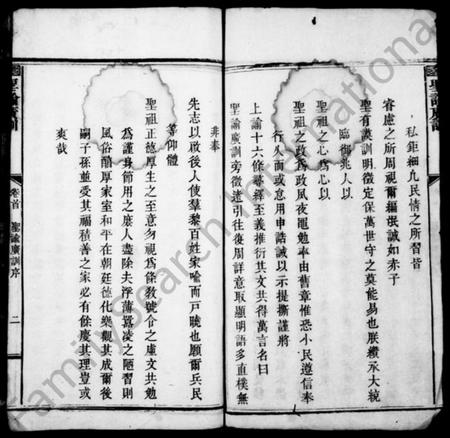 私鉅細凡民情之所習皆
睿慮之所周視爾編氓誠如赤子
聖有謨訓明徵定保萬世守之莫能易也朕纘承大統
臨御兆人以
聖祖之心為心以
聖祖之政為政夙夜黽勉率由舊章惟恐小民遵信奉
行久而或怠用申誥誡以示提撕謹將
上諭十六條尋繹其義推衍其文共得萬言名曰
聖諭廣訓旁徵遠引往復周詳意取顯明語多直樸無
非奉
先志以啟後人使羣黎百姓家喻而戶曉也願爾兵民
等仰體
聖祖正德厚生之至意勿視為條教號令之虛文共勉
為謹身節用之庶人盡除夫浮薄囂凌之陋習則
風俗醇厚家室和平在朝廷德化樂觀其成爾後
嗣子孫並受其福積善之家必有餘慶其理豈或
爽哉
聖諭廣訓
卷首
聖諭廣訓序
二
FamilySearch International